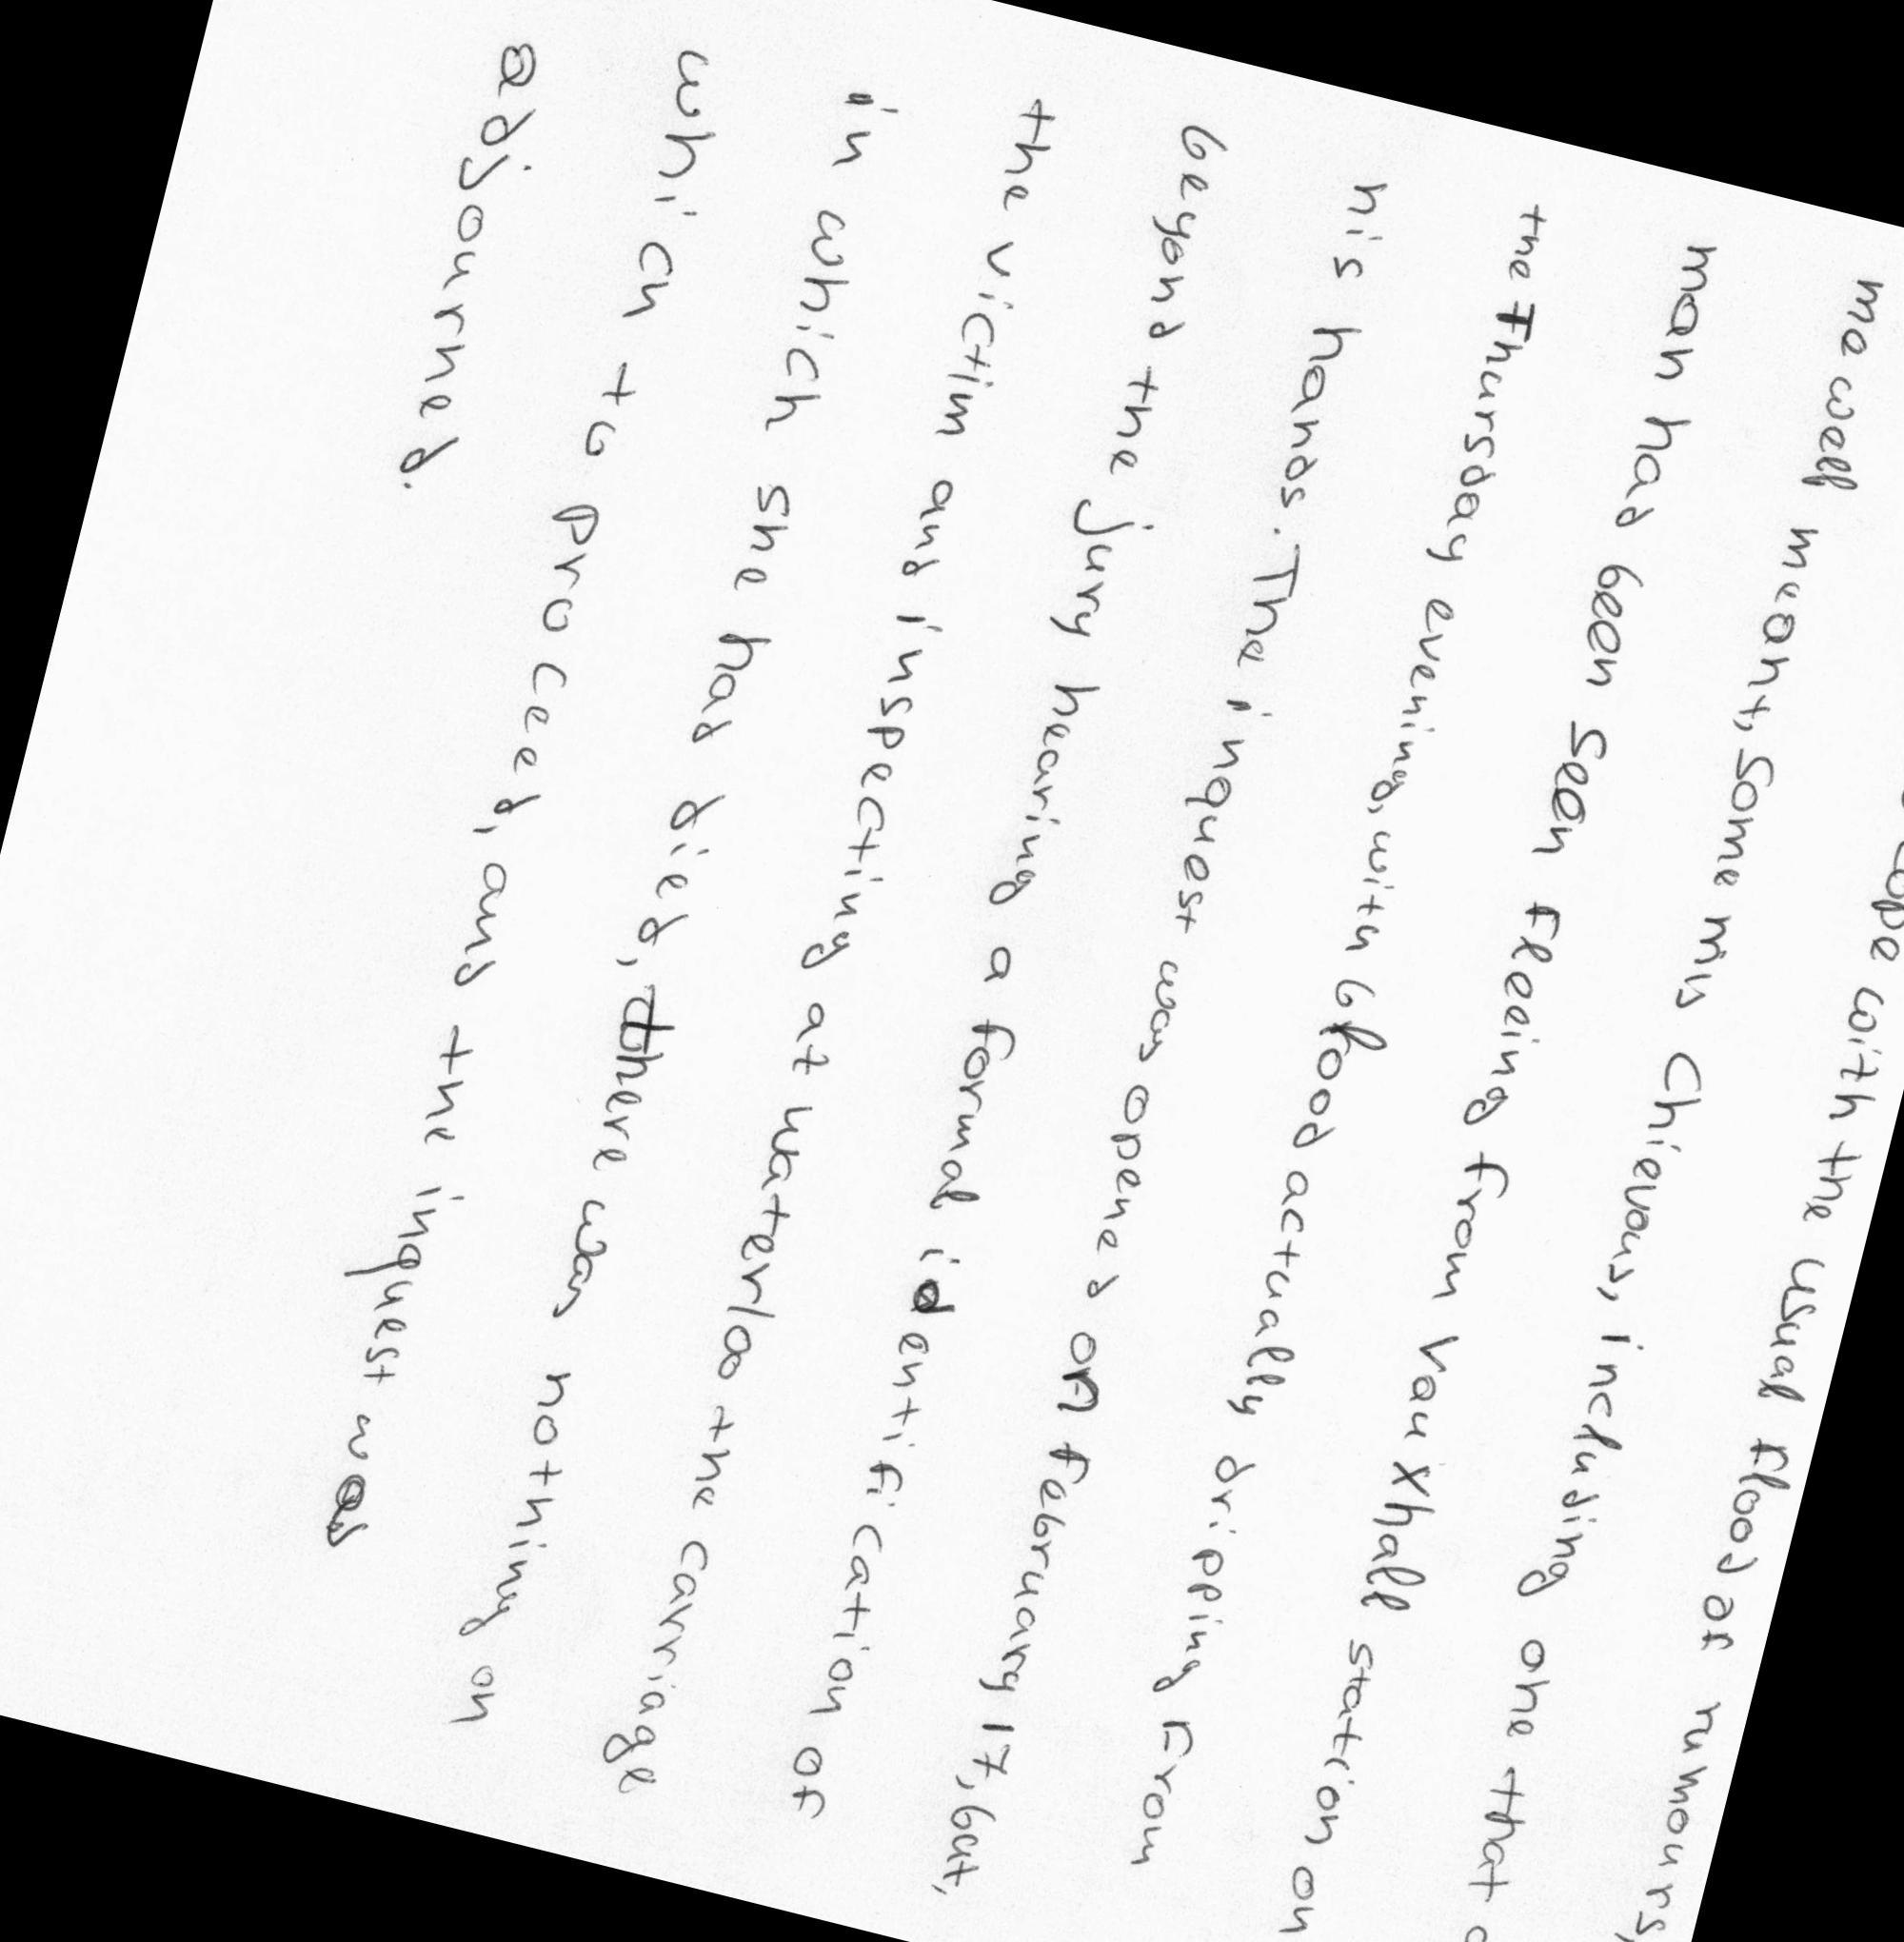 cope with the usual flood of rumours,
me well meant, some mischievous, including one that
man had been seen fleeing from Vauxhall station on
the Thursday evening, with blood actually dripping from
his hands. The inquest was opened on february 17, but,
beyond the jury hearing a formal identification of
the victim and inspecting at waterloo the carriage
in which she had died, there was nothing on
which to proceed, and the inquest was
adjourned.